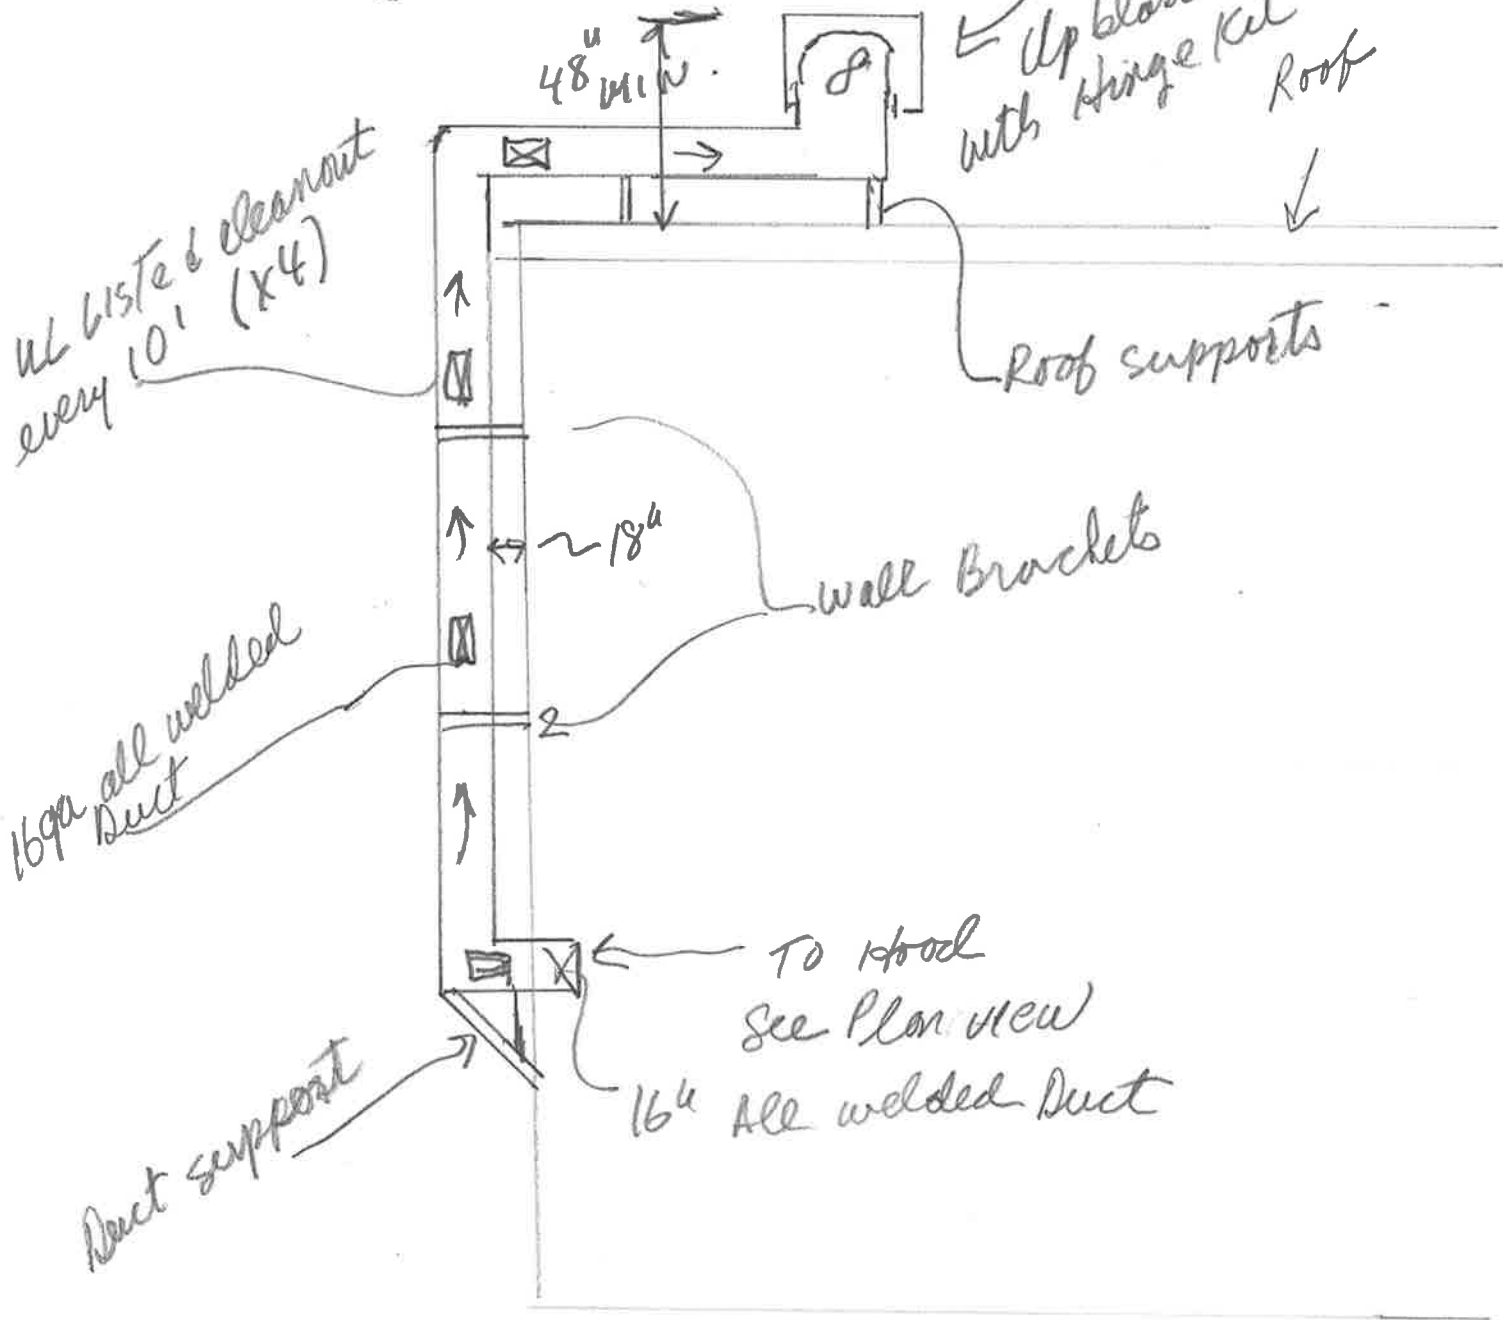 48" MIN.
with Hinge Kit
Roof
UL Listed cleanout
every 10' (X4)
Roof supports
~ 18"
Wall Brackets
16ga all welded
Duct
2
To Hood
See Plan view
16" All welded Duct
Duct support